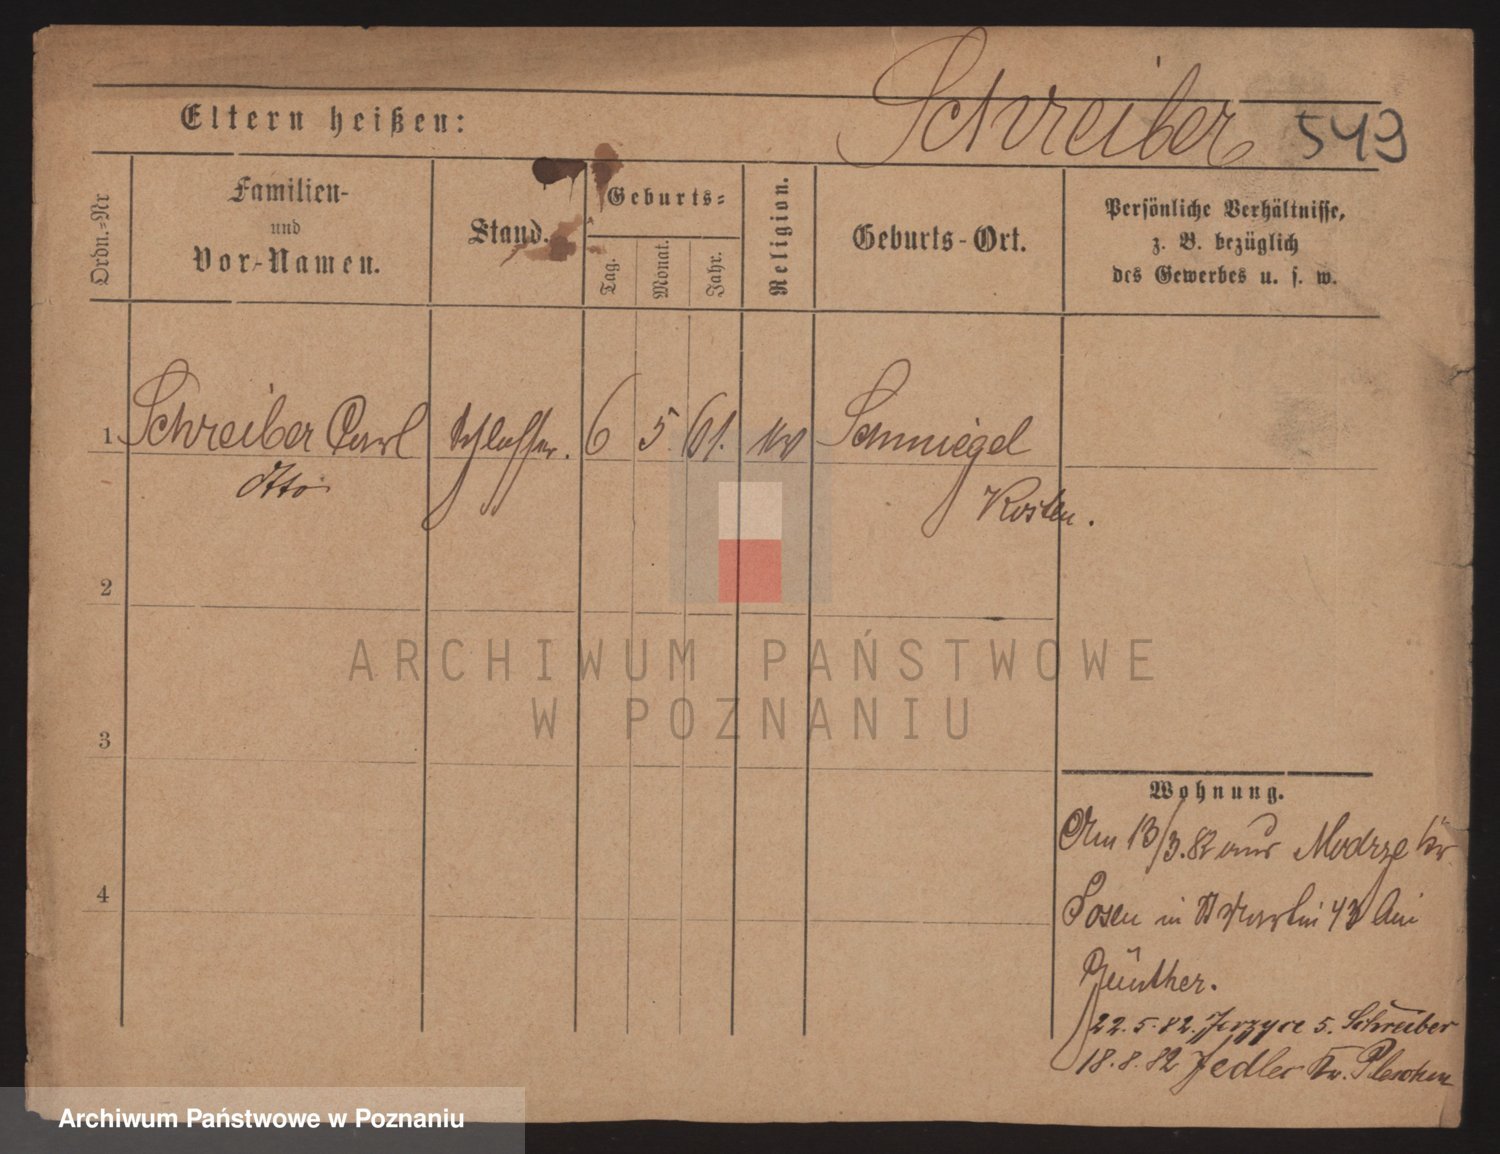 Schreiber 549
Eltern heißen:
Ordn.=Nr
Familien-
und
Vor-Namen.
Stand.
Geburts=
Tag.
Monat.
Jahr.
Religion.
Geburts-Ort.
Persönliche Verhältnisse,
z. B. bezüglich
des Gewerbes u. s. w.
1 Schreiber Carl Schlosser. 6 5 61. Schmiegel
Otto
Kosten.
2
3
4
ARCHIWUM PAŃSTWOWE
W POZNANIU
Wohnung.
Am 13/3.82 aus Modrze Kr
Posen in St Martin 43 bei
Günther.
22.5.82. Jerzyce 5. Schreiber
18.8.82 Jedlec Kr. Pleschen
Archiwum Państwowe w Poznaniu